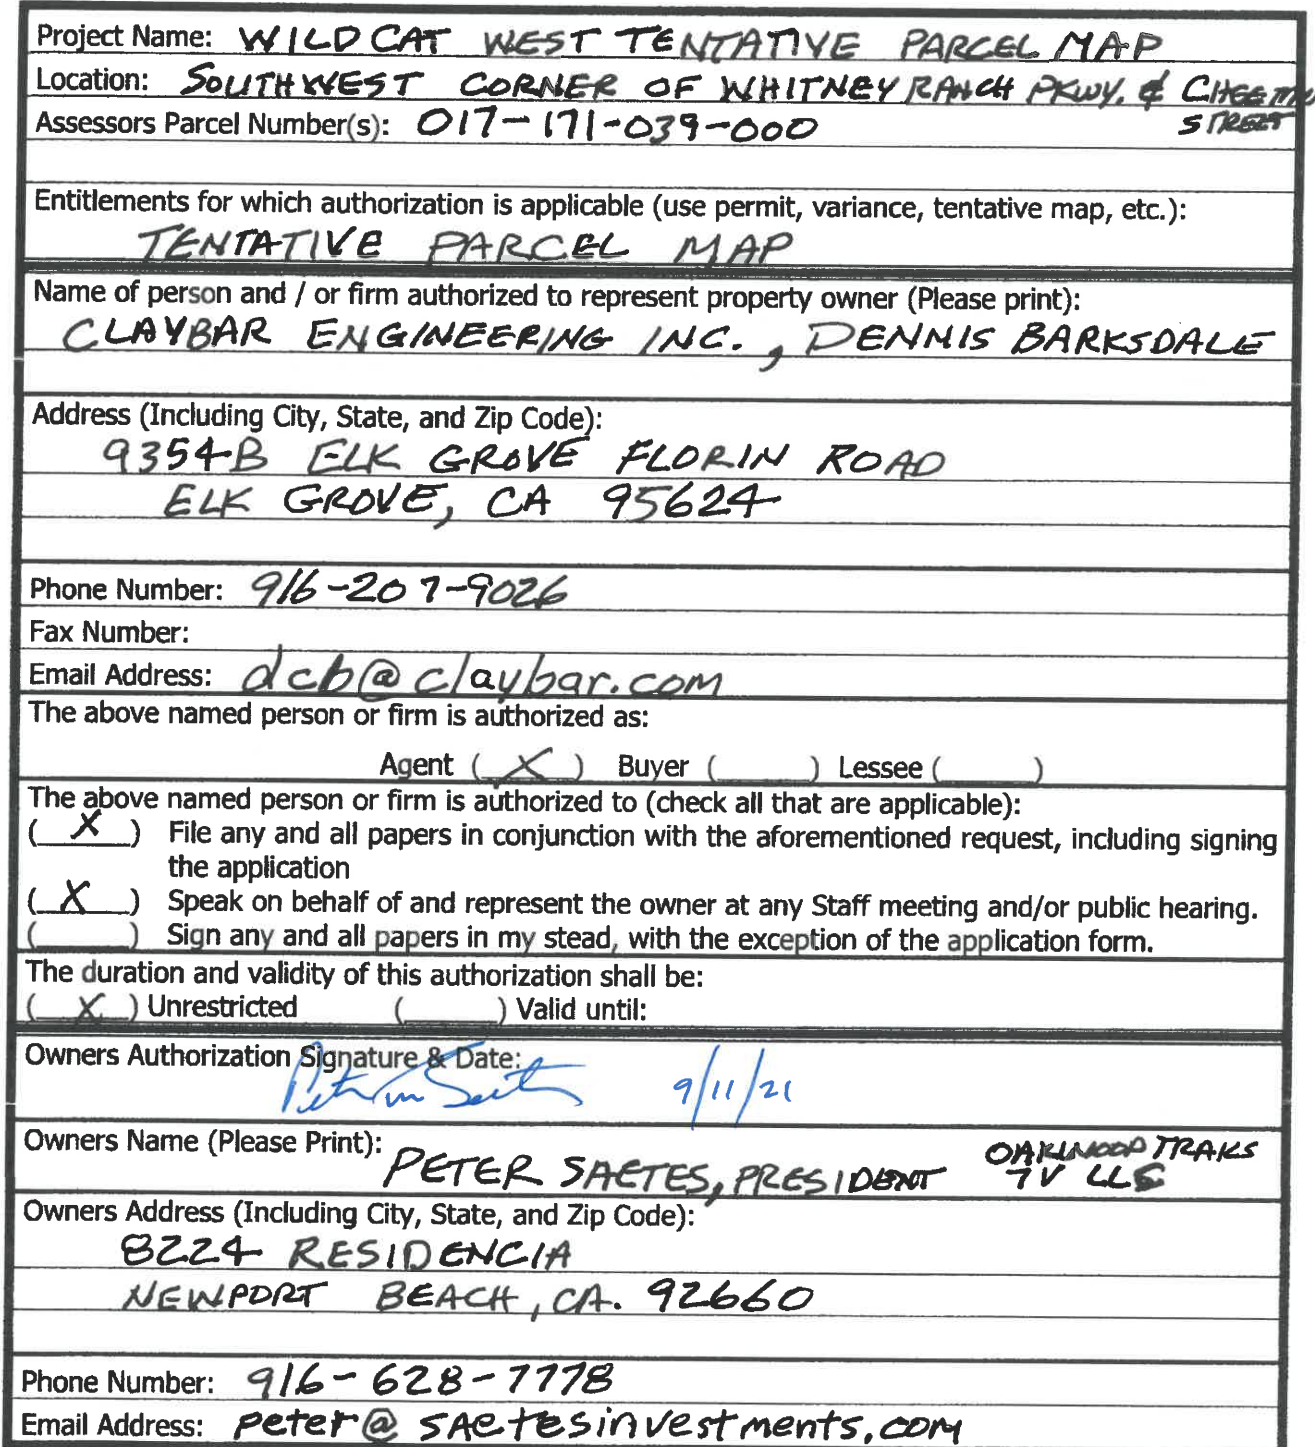 Project Name: WILDCAT WEST TENTATIVE PARCEL MAP
Location: SOUTHWEST CORNER OF WHITNEY RANCH PKWY. &
STREET
Assessors Parcel Number(s): 017-171-039-000
Entitlements for which authorization is applicable (use permit, variance, tentative map, etc.):
TENTATIVE PARCEL MAP
Name of person and / or firm authorized to represent property owner (Please print):
CLAYBAR ENGINEERING INC., DENNIS BARKSDALE
Address (Including City, State, and Zip Code):
9354-B ELK GROVE FLORIN ROAD
ELK GROVE, CA 95624
Phone Number: 916-207-9026
Fax Number:
Email Address: dcb@claybar.com
The above named person or firm is authorized as:
Agent ( X ) Buyer (____) Lessee (____)
The above named person or firm is authorized to (check all that are applicable):
( X ) File any and all papers in conjunction with the aforementioned request, including signing
the application
( X ) Speak on behalf of and represent the owner at any Staff meeting and/or public hearing.
(____) Sign any and all papers in my stead, with the exception of the application form.
The duration and validity of this authorization shall be:
( X ) Unrestricted (____) Valid until:
Owners Authorization Signature & Date:
9/11/21
Owners Name (Please Print): PETER SAETES, PRESIDENT
OAKWOOD TRAKS
7V LLC
Owners Address (Including City, State, and Zip Code):
8224 RESIDENCIA
NEWPORT BEACH, CA. 92660
Phone Number: 916-628-7778
Email Address: peter@saetesinvestments.com